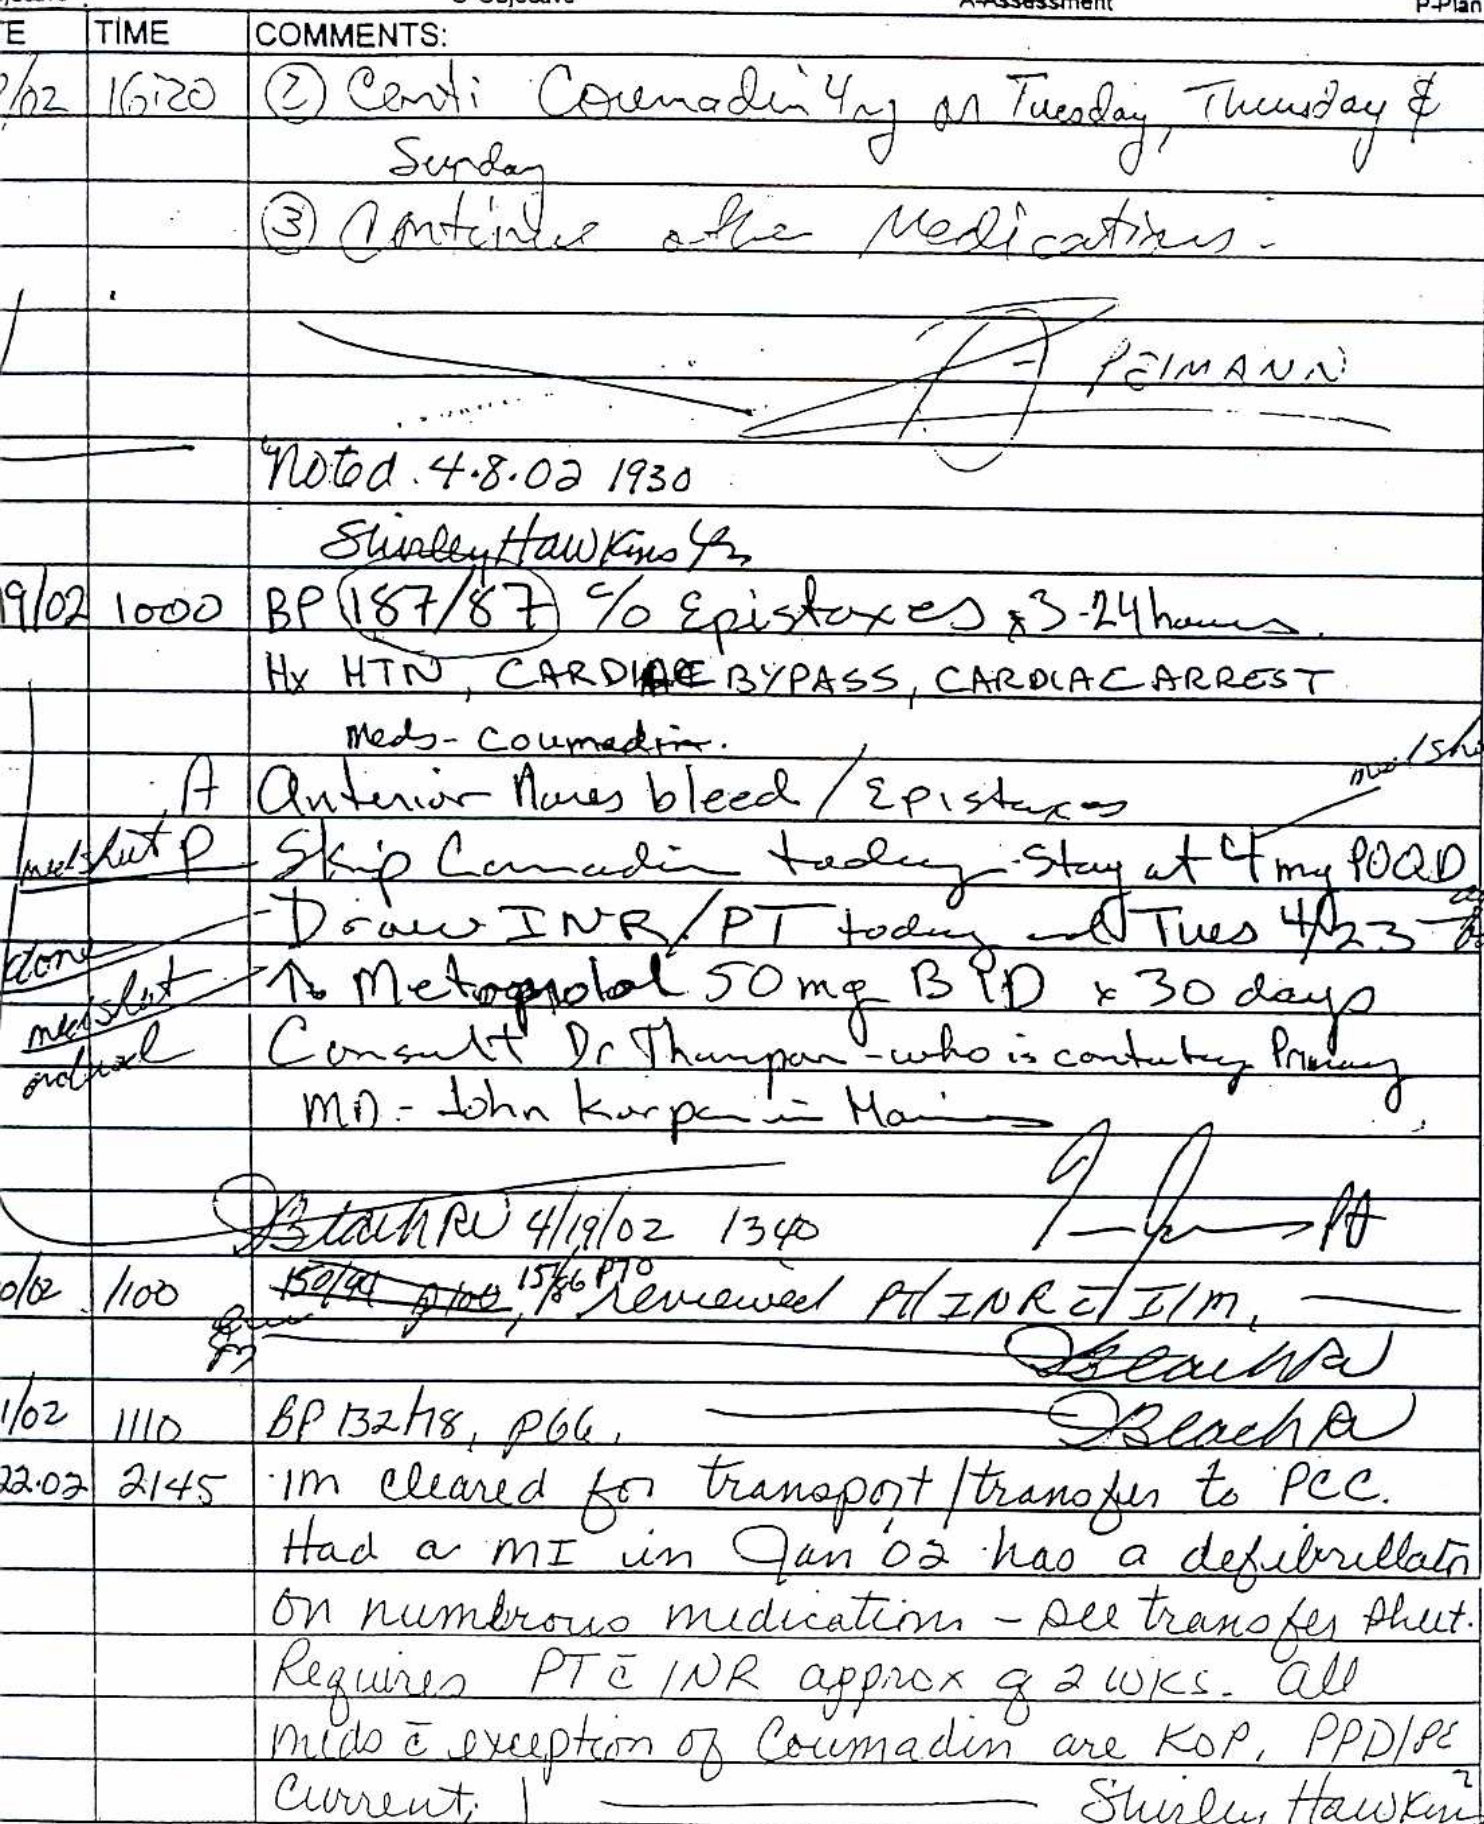 O-Objective A-Assessment P-Plan
E TIME COMMENTS:
/02 1620 ② Conti Coumadin 4mg on Tuesday, Thursday &
Sunday
③ Continue other Medications.
PEIMANN
Noted 4.8.02 1930
Shirley Hawkins
19/02 1000 BP 187/87 c/o Epistaxes x3-24 hours.
Hx HTN, CARDIAC BYPASS, CARDIAC ARREST
Meds - Coumadin.
A Anterior Nares bleed / Epistaxes
P Skip Coumadin today - Stay at 4 mg POQD
Draw INR/PT today and Tues 4/23
done
↑ Metoprolol 50 mg BID x 30 days
Consult Dr - who is contacting Primary
MD - John
Beach RN 4/19/02 1340 PA
0/02 1100 reviewed PT/INR c̄ I/M,
Beach RN
1/02 1110 BP 132/78, p66, Beach RN
22.02 2145 IM cleared for transport/transfer to PCC.
Had a MI in Jan '02 has a defibrillator
on numerous medication - see transfer sheet.
Requires PT c̄ INR approx q 2 wks. All
meds c̄ exception of Coumadin are KOP, PPD/PE
Current, Shirley Hawkins